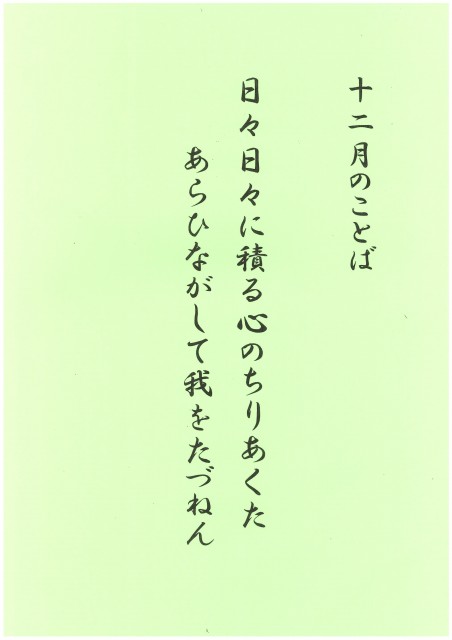 十二月のことば
日々日々に積る心のちりあくた
あらひながして我をたづねん